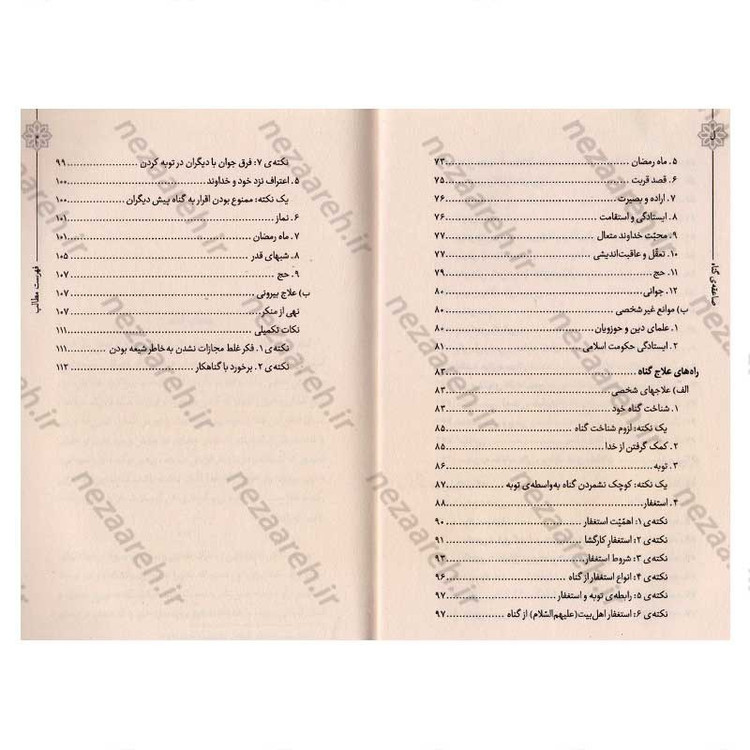 صاعقه‌ی گناه
۵. ماه رمضان ........ ۷۳
۶. قصد قربت ........ ۷۵
۷. اراده و بصیرت ........ ۷۶
۸. ایستادگی و استقامت ........ ۷۶
۹. محبّت خداوند متعال ........ ۷۷
۱۰. تعقّل و عاقبت‌اندیشی ........ ۷۷
۱۱. حج ........ ۷۹
۱۲. جوانی ........ ۸۰
ب) موانع غیر شخصی ........ ۸۰
۱. علمای دین و حوزویان ........ ۸۰
۲. ایستادگی حکومت اسلامی ........ ۸۱
راه‌های علاج گناه ........ ۸۳
الف) علاجهای شخصی ........ ۸۳
۱. شناخت گناه خود ........ ۸۳
یک نکته: لزوم شناخت گناه ........ ۸۵
۲. کمک گرفتن از خدا ........ ۸۵
۳. توبه ........ ۸۶
یک نکته: کوچک نشمردن گناه به‌واسطه‌ی توبه ........ ۸۷
۴. استغفار ........ ۸۸
نکته‌ی ۱: اهمّیّت استغفار ........ ۹۰
نکته‌ی ۲: استغفارِ کارگشا ........ ۹۱
نکته‌ی ۳: شروط استغفار ........ ۹۳
نکته‌ی ۴: انواع استغفار از گناه ........ ۹۶
نکته‌ی ۵: رابطه‌ی توبه و استغفار ........ ۹۷
نکته‌ی ۶: استغفار اهل‌بیت(علیهم‌السّلام) از گناه ........ ۹۷
فهرست مطالب
نکته‌ی ۷: فرق جوان با دیگران در توبه کردن ........ ۹۹
۵. اعتراف نزد خود و خداوند ........ ۱۰۰
یک نکته: ممنوع بودن اقرار به گناه پیش دیگران ........ ۱۰۰
۶. نماز ........ ۱۰۱
۷. ماه رمضان ........ ۱۰۱
۸. شبهای قدر ........ ۱۰۵
۹. حج ........ ۱۰۷
ب) علاج بیرونی ........ ۱۰۷
نهی از منکر ........ ۱۰۷
نکات تکمیلی ........ ۱۱۱
نکته‌ی ۱. فکر غلط مجازات نشدن به خاطر شیعه بودن ........ ۱۱۱
نکته‌ی ۲. برخورد با گناهکار ........ ۱۱۲
nezaareh.ir